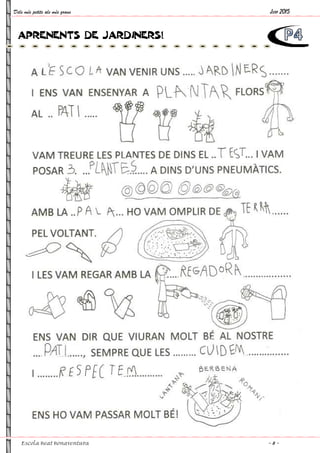 Dels més petits als més grans Juny 2015
APRENENTS DE JARDINERS!
P4
A L'ESCOLA VAN VENIR UNS ..... JARDINERS.......
I ENS VAN ENSENYAR A PLANTAR FLORS
AL .. PATI .....
VAM TREURE LES PLANTES DE DINS EL ..TEST... I VAM
POSAR 3. ...PLANTES...... A DINS D'UNS PNEUMÀTICS.
AMB LA ..PALA... HO VAM OMPLIR DE TERRA......
PEL VOLTANT.
I LES VAM REGAR AMB LA ....REGADORA.................
ENS VAN DIR QUE VIURAN MOLT BÉ AL NOSTRE
...PATI......, SEMPRE QUE LES ......... CUIDEM ...............
I ........RESPECTEM.............
BERBENA
LANTANA
ROMANÍ
ENS HO VAM PASSAR MOLT BÉ!
Escola Beat Bonaventura